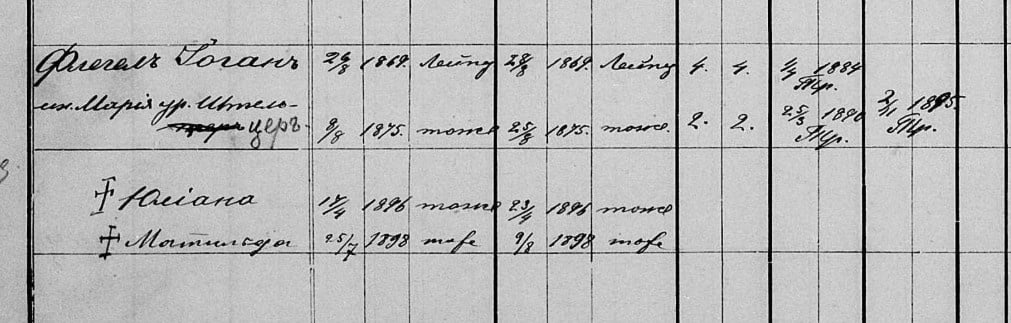 Флегелъ Іоганъ 26/8 1869. Лейпц 28/8 1869. Лейпц 4. 4. 1/4 1884 Тар.
жн. Марія ур. Штель-
церъ. 9/8 1875. тоже 25/8 1875. тоже. 2. 2. 25/3 1890 Тар. 2/11 1895. Тар.
Юліана 17/4 1896 тоже 23/4 1896 тоже
Матильда 25/7 1898 тоже 9/8 1898 тоже